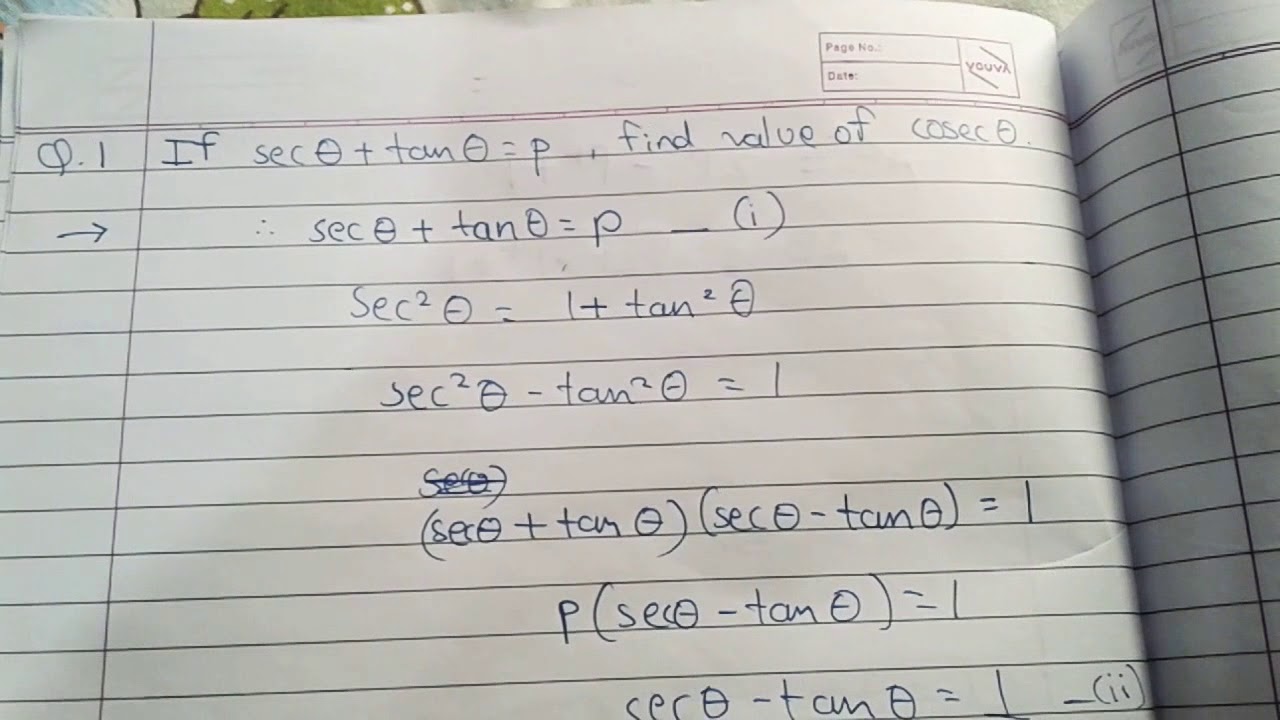 Page No.:
Date:
YOUVA
Q.1 If secθ + tanθ = p , find value of cosecθ.
→ ∴ secθ + tanθ = p — (i)
sec²θ = 1 + tan²θ
sec²θ - tan²θ = 1
(secθ + tanθ)(secθ - tanθ) = 1
p(secθ - tanθ) = 1
secθ - tanθ = 1 — (ii)